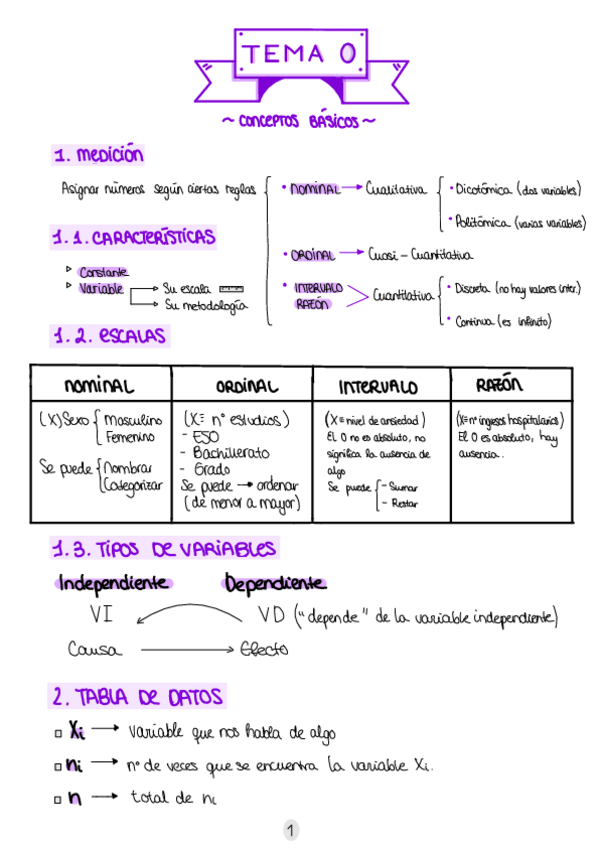 TEMA 0
~ CONCEPTOS BÁSICOS ~
1. MEDICIÓN
Asignar números según ciertas reglas
• NOMINAL → Cualitativa
• Dicotómica (dos variables)
• Politómica (varias variables)
• ORDINAL → Cuasi - Cuantitativa
• INTERVALO
RAZÓN
Cuantitativa
• Discreta (no hay valores inter.)
• Continua (es infinito)
1.1. CARACTERÍSTICAS
Constante
Variable → Su escala
→ Su metodología
1.2. ESCALAS
NOMINAL
(X) Sexo { Masculino
Femenino
Se puede { Nombrar
Categorizar
ORDINAL
(X ≡ nº estudios)
- ESO
- Bachillerato
- Grado
Se puede → ordenar
(de menor a mayor)
INTERVALO
(X ≡ nivel de ansiedad)
El 0 no es absoluto, no
significa la ausencia de
algo
Se puede { - Sumar
- Restar
RAZÓN
(X ≡ nº ingresos hospitalarios)
El 0 es absoluto, hay
ausencia..
1.3. TIPOS DE VARIABLES
Independiente Dependiente
VI VD ("depende" de la variable independiente)
Causa → Efecto
2. TABLA DE DATOS
Xi → variable que nos habla de algo
ni → nº de veces que se encuentra la variable Xi.
n → total de ni
1